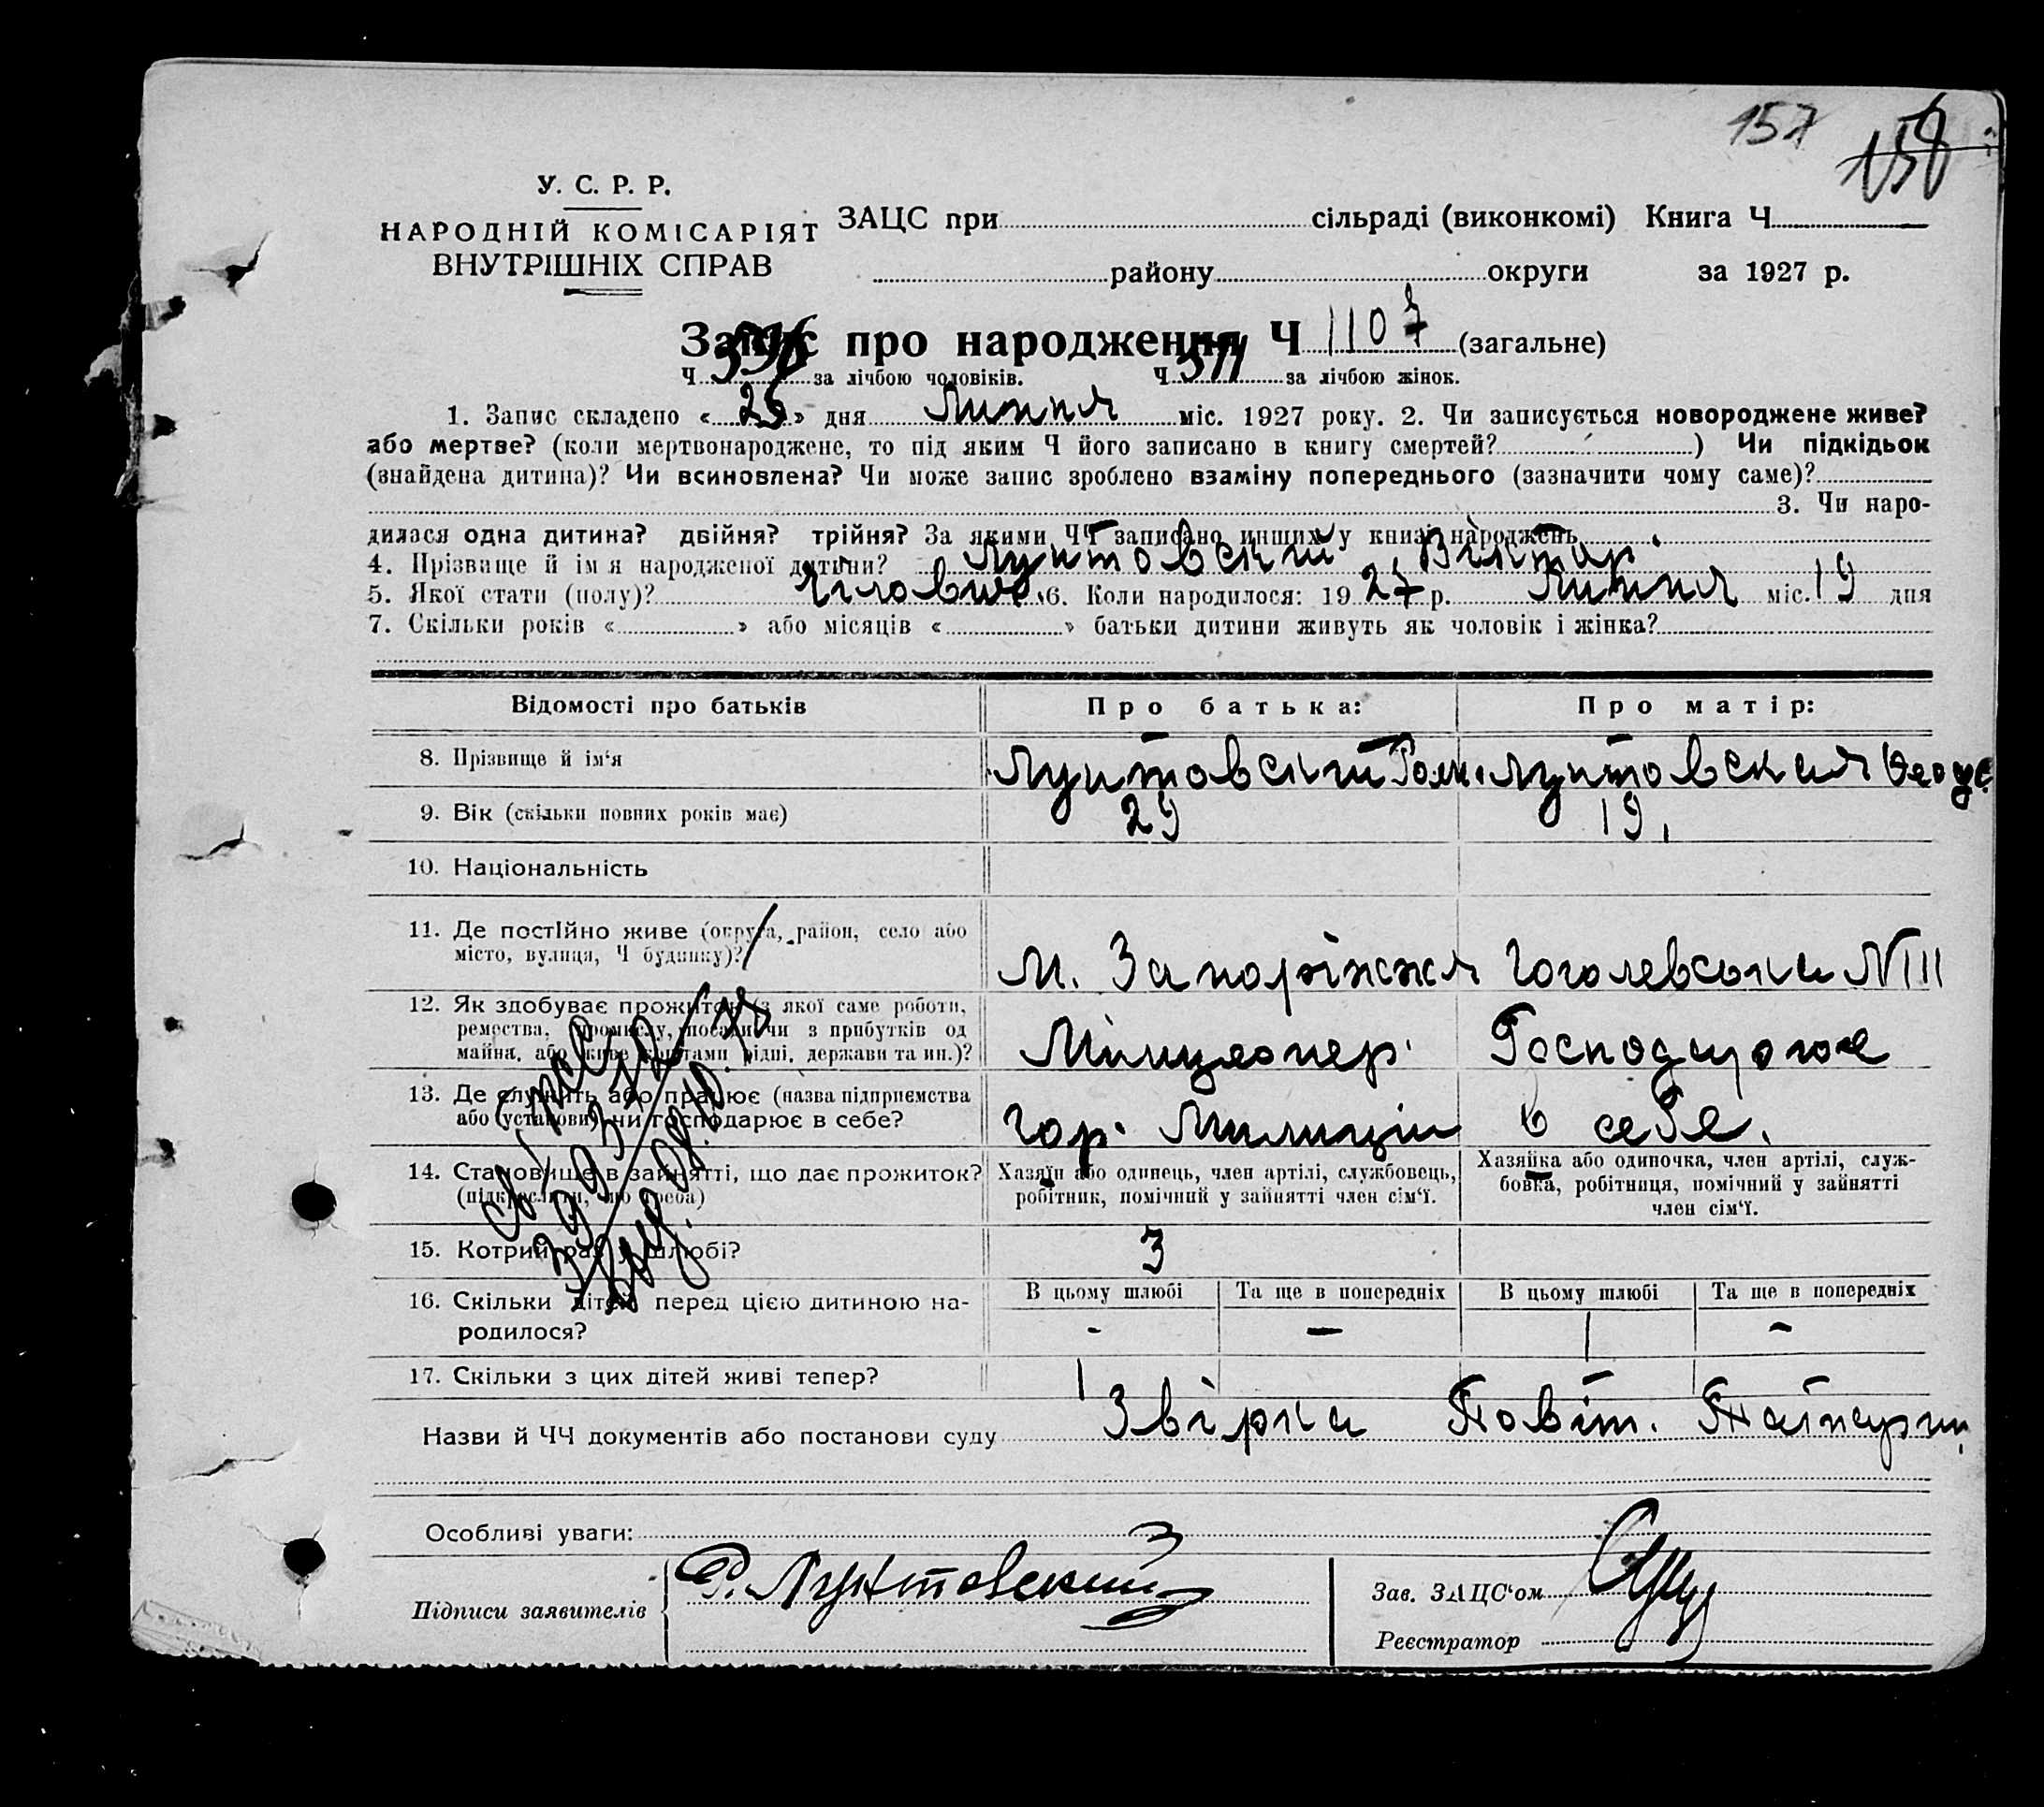 157 158
У. С. Р. Р.
НАРОДНІЙ КОМІСАРІЯТ
ВНУТРІШНІХ СПРАВ
ЗАЦС при сільраді (виконкомі) Книга Ч
району округи за 1927 р.
Запис про народження Ч 1107 (загальне)
Ч 596 за лічбою чоловіків. Ч 511 за лічбою жінок.
1. Запис складено « 25 » дня Липня міс. 1927 року. 2. Чи записується новороджене живе?
або мертве? (коли мертвонароджене, то під яким Ч його записано в книгу смертей? ) Чи підкідьок
(знайдена дитина)? Чи всиновлена? Чи може запис зроблено взаміну попереднього (зазначити чому саме)?
3. Чи наро-
дилася одна дитина? двійня? трійня? За якими ЧЧ записано инших у книзі народжень
4. Прізвище й ім'я народженої дитини? Лунтовский Віктор.
5. Якої стати (полу)? Чіловиче 6. Коли народилося: 1927 р. Липня міс. 19 дня
7. Скільки років « » або місяців « » батьки дитини живуть як чоловік і жінка?
Відомості про батьків Про батька: Про матір:
8. Прізвище й ім'я Лунтовский Ром. Лунтовская
9. Вік (скільки повних років має) 29 19.
10. Національність
11. Де постійно живе (округа, район, село або
місто, вулиця, Ч будинку)? м. Запоріжжя Гоголевська N 111
12. Як здобуває прожиток (з якої саме роботи,
ремества, промислу, посади чи з прибутків од
майна, або живе коштами рідні, держави та ин.)? Міліціонер. Господарює
13. Де служить або працює (назва підприємства
або установи) чи господарює в себе? гор. Милиции в себе.
14. Становище в зайнятті, що дає прожиток?
(підкреслити, що треба)
Хазяїн або одинець, член артілі, службовець,
робітник, помічний у зайнятті член сім'ї.
Хазяйка або одиночка, член артілі, служ-
бовка, робітниця, помічний у зайнятті
член сім'ї.
15. Котрий раз у шлюбі? 3
16. Скільки дітей перед цією дитиною на-
родилося?
В цьому шлюбі Та ще в попередніх В цьому шлюбі Та ще в попередніх
- - | -
17. Скільки з цих дітей живі тепер? |
Назви й ЧЧ документів або постанови суду Звірка Повіт.
Особливі уваги:
Підписи заявителів Р. Лунтовский
Зав. ЗАЦС'ом
Реєстратор